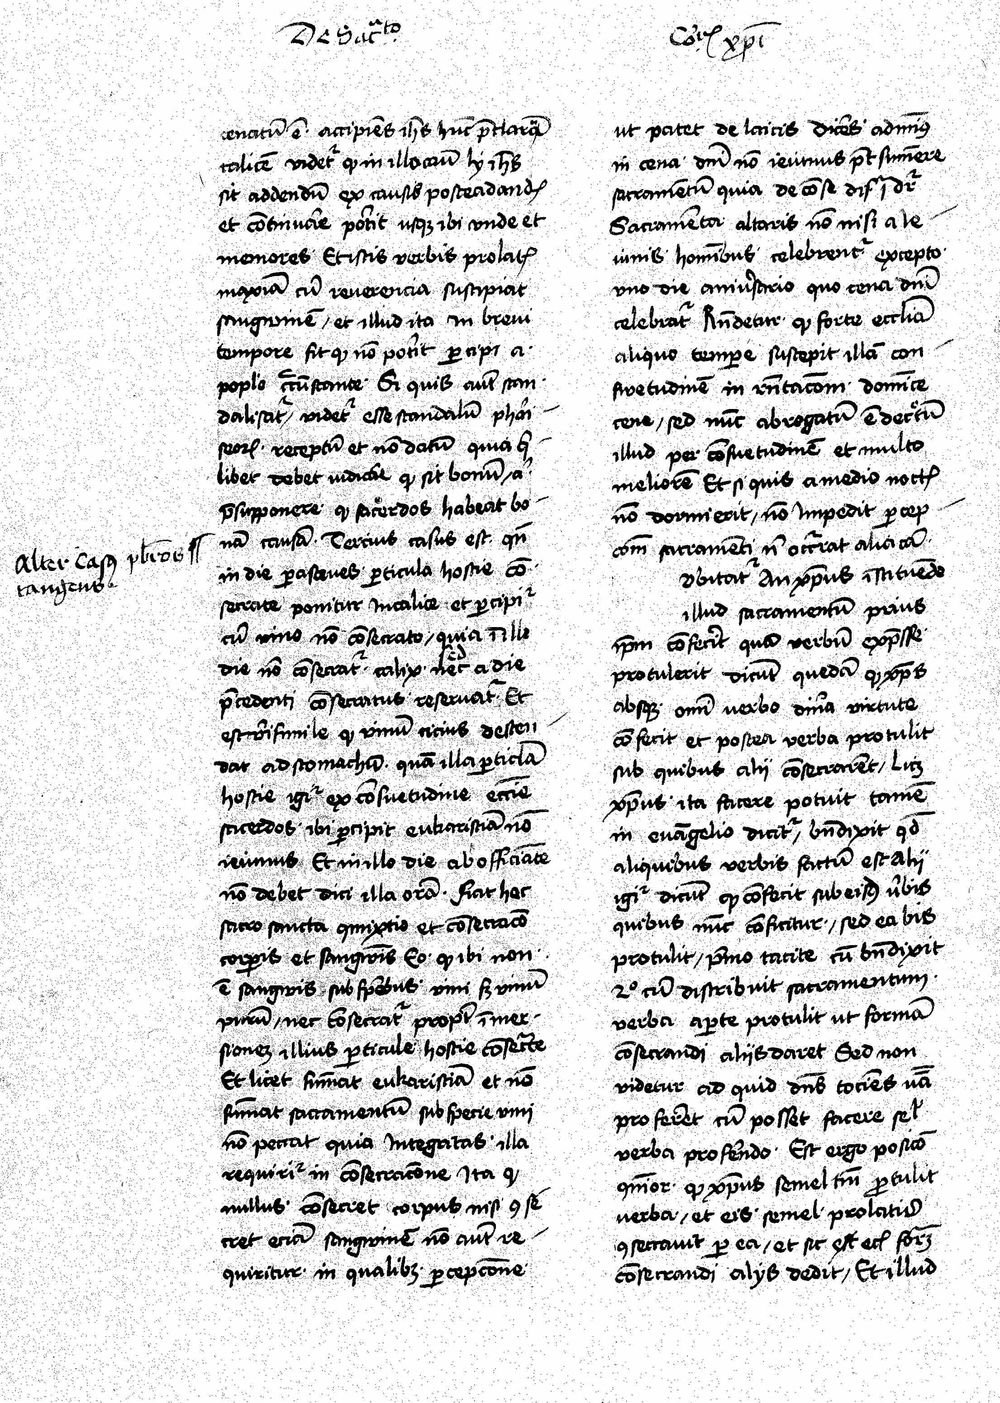 De Sacᵃto
Corꝑ xp̄i
cenatū ē accipiēs ih̄s hūc p̄clarū
calicē videtᵣ ꝙ in illo cū ly ih̄s
sit addendū ex causis postea dand
et cōtinuare pōtit usqꝫ ibi unde et
memores Et istis verbis prolat
maxīa cū reverencia suscipiat
sangwinē / et illud ita in brevi
tempore fit ꝙ nō potīt ꝑcipi a
poplo c̄cūstante Si quis aut scan
dalisatᵣ / videtᵣ esse scandalū phari
seoꝝ receptū et nō datū quia q̄
libet debet iudicare ꝙ sit bonū / 
p̄supponere ꝙ sacerdos habeat bo
nā causā Tercius casus est qn̄
in die ꝑasceves ꝑticula hostie cō
secrate ponitur in calice et ꝑcipiᵣ
cū vino nō cōsecrato / quia ī illo
die nō cōsecratᵣ calix nec a die
p̄cedenti cōsecratus reservatᵣ Et
est vīsimile ꝙ vinū cicius descen
dat ad stomachū quā illa ꝑticla
hostie igiᵣ ex cōsuetudine ecc̄ie
sacerdos ibi ꝑcipit eukaristiā nō
ieiunus Et in illo die ab officiāte
nō debet dici illa orā Fiat hec
sacro sancta ꝯmixtio et cōsecracō
corꝑis et sangwīs Eo ꝙ ibi non
ē sangwis sub spēbus vini sꝫ vinū
purū / nec cōsecratᵣ propt īmer
sionē illius ꝑticule hostie cōsecᵃte
Et licet sumat eukaristiā et nō
sumat sacramentū sub specie vini
nō peccat quia integritas illa
requiriᵣ in cōsecracōne Ita ꝙ
nullus cōsecret corpus nisi ꝯse
cret eciā sangwinē nō aut re
quiritur in qualibꝫ ꝑcepcōne
Alter Casꝰ pbr̄os
tangens
ut patet de laicis Dices
in cena dn̄i nō ieiunus p̄t sumere
sacramētū quia de cōse dis ī dr̄
Sacramēta altaris nō nisi a ie
iunis hominibus celebrentᵣ excepto
uno die aniv̄sario quo cena dn̄i
celebratᵣ Rn̄detur ꝙ forte eccliā
aliquo tempe suscepit illā con
suetudinē in rn̄tacōm domīce
cene / sed nūc abrogatū ē decᵉtū
illud per cōsuetudinē et multo
meliorē Et si quis a medio noct
nō dormierit / nō impedit ꝑcep
cōm sacramēti nⁱ occᵣrat alia cā
Dubitatᵣ An xp̄us īstituēdo
illud sacramentum prius
ip̄m cōfecīt quā verbū exp̄sse
protulerit dicūt quedā ꝙ xp̄s
absqꝫ omī verbo divīa virtute
cōfecit et postea verba protulit
sub quibus alii cōsecrarēt / Licꝫ
xp̄us ita facere potuit tamē
in evāgelio dicitᵣ / bn̄dixit qd̄
aliquibus verbis factū est Alii
igiᵣ dicūt ꝙ cōfecit sub eisdꝫ v̄bis
quibus nūc cōficitur / sed ea bis
protulit / p̄mo tacite cū bn̄dixit
2º cū distribuit sacramentum
verba aꝑte protulit ut formā
cōsecrandi aliis daret Sed non
videtur ad quid dn̄s tociēs v̄ba
proferret cū posset facere sel
verba proferēdo Est ergo posicō
ꝙ xp̄us semel tm̄ ꝓtulit
verba / et eis semel prolatis
ꝯsecravit ꝑ ea / et sic est ecī formā
cōsecrandi alijs dedit / Et illud